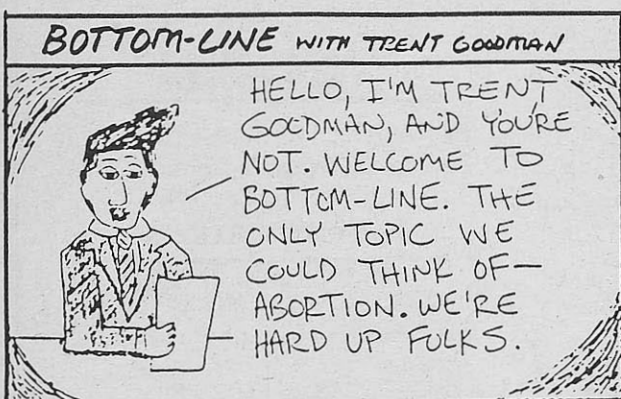 BOTTOM-LINE WITH TRENT GOODMAN
HELLO, I'M TRENT
GOODMAN, AND YOU'RE
NOT. WELCOME TO
BOTTOM-LINE. THE
ONLY TOPIC WE
COULD THINK OF—
ABORTION. WE'RE
HARD UP FOLKS.